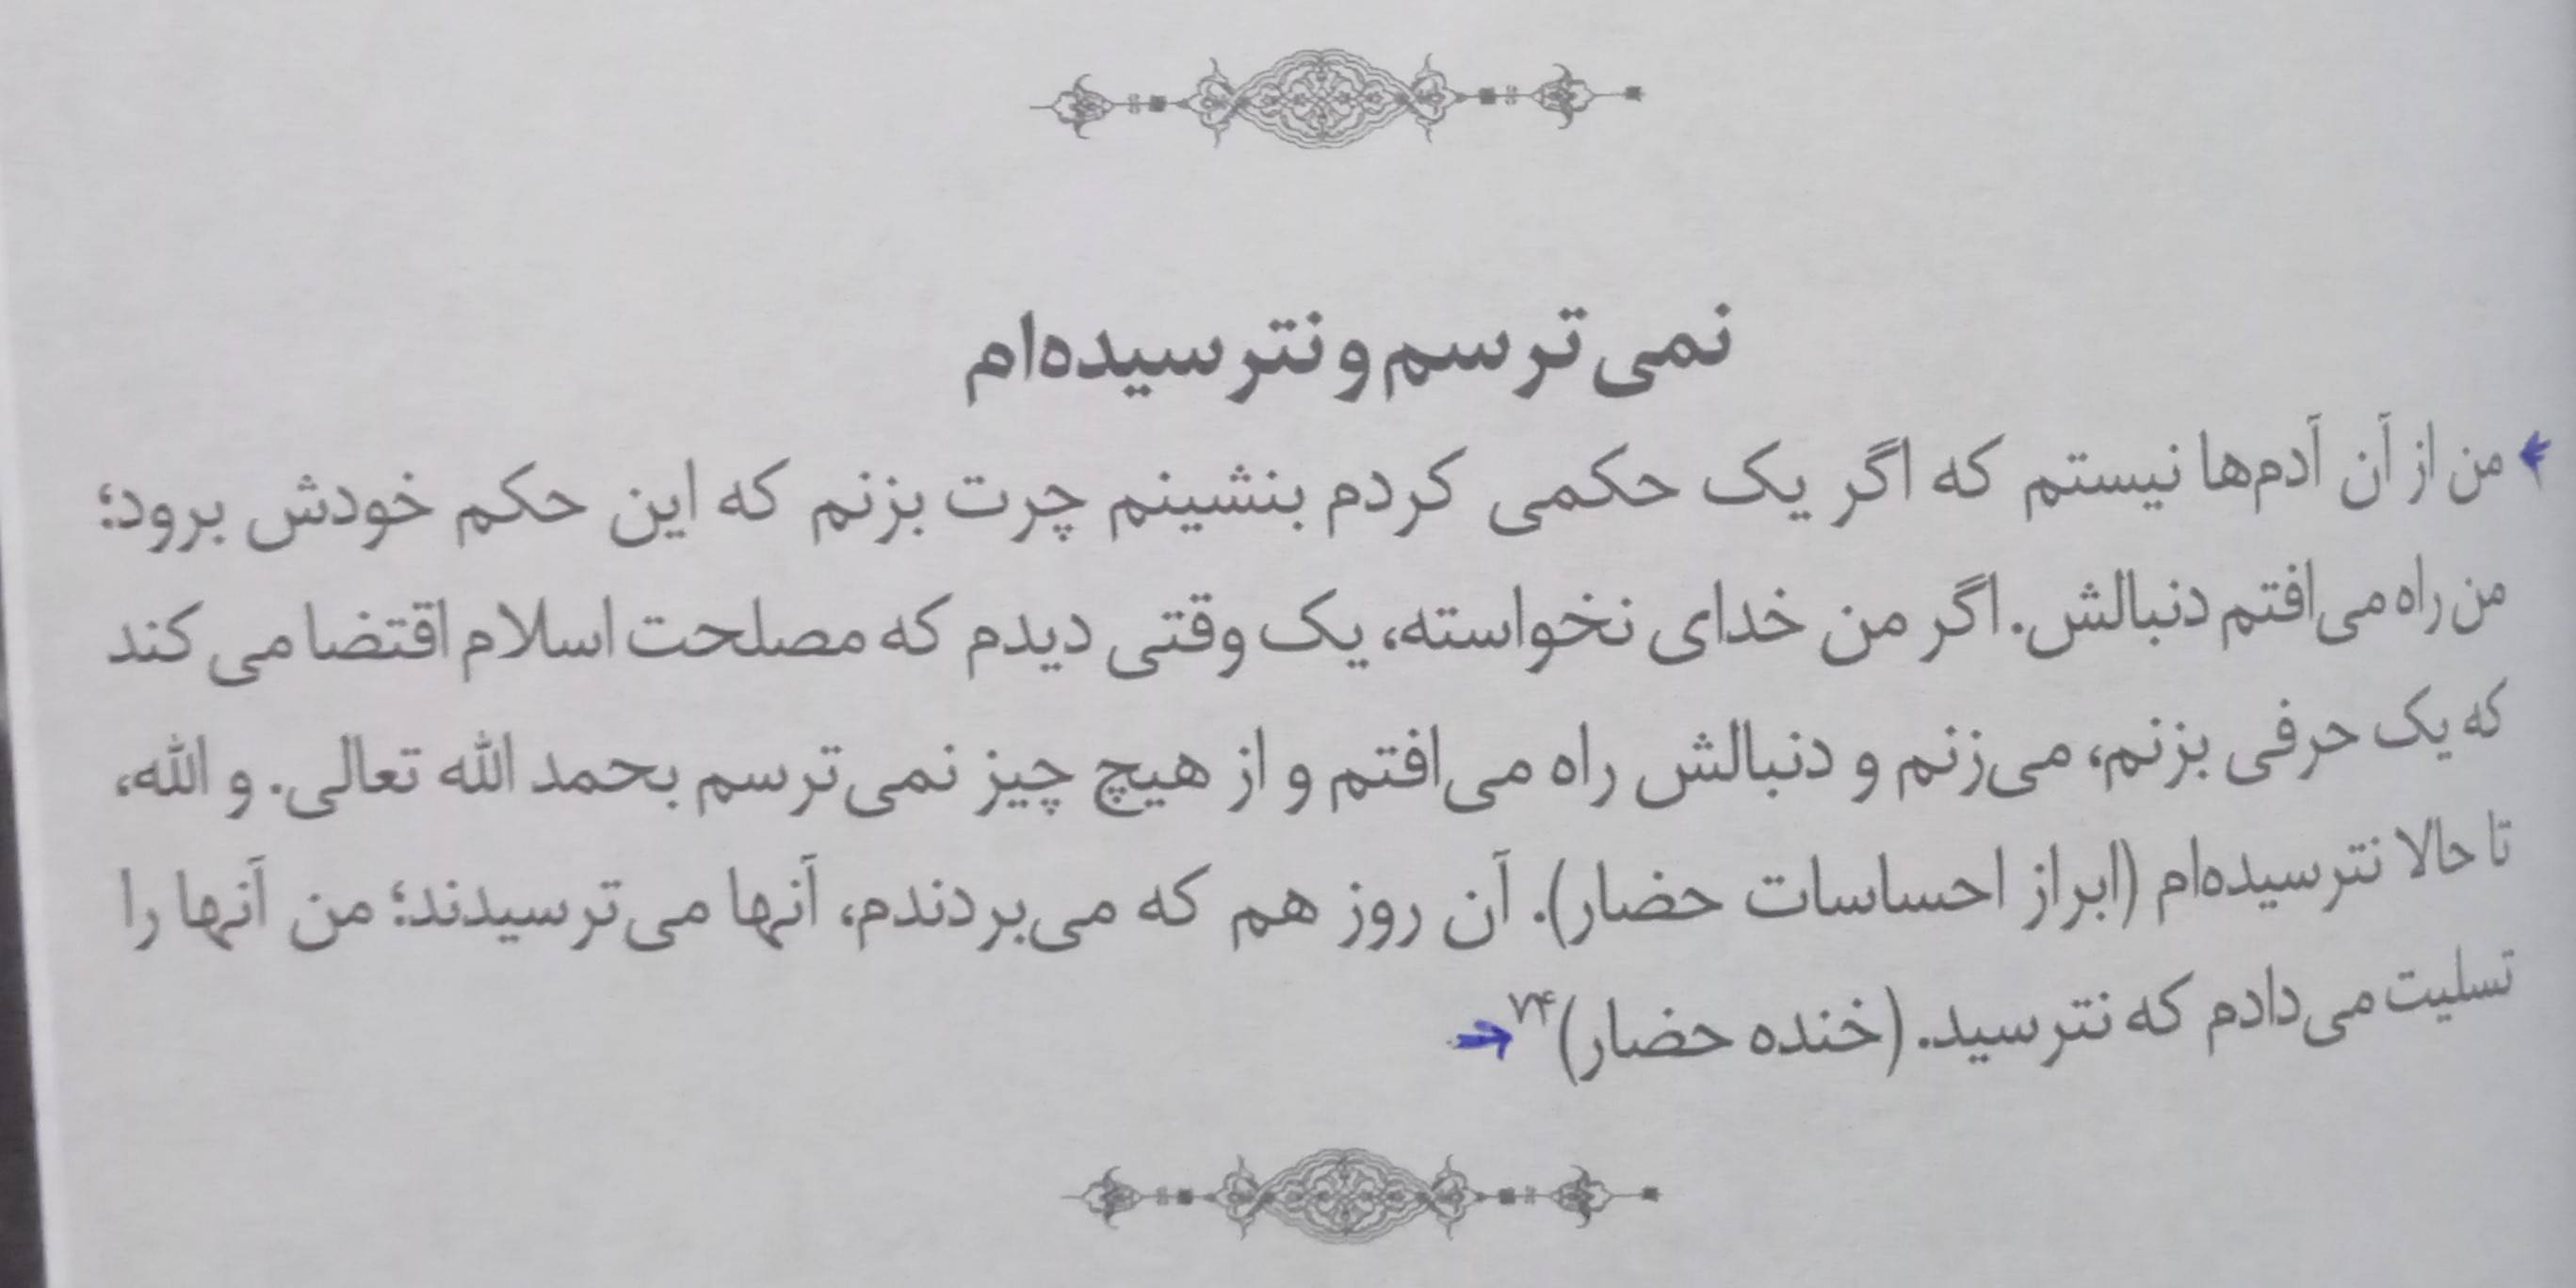 نمی‌ترسم و نترسیده‌ام
من از آن آدم‌ها نیستم که اگر یک حکمی کردم بنشینم چرت بزنم که این حکم خودش برود؛
من راه می‌افتم دنبالش. اگر من خدای نخواسته، یک وقتی دیدم که مصلحت اسلام اقتضا می‌کند
که یک حرفی بزنم، می‌زنم و دنبالش راه می‌افتم و از هیچ چیز نمی‌ترسم بحمد الله تعالی. و الله،
تا حالا نترسیده‌ام (ابراز احساسات حضار). آن روز هم که می‌بردندم، آنها می‌ترسیدند؛ من آنها را
تسلیت می‌دادم که نترسید. (خنده حضار)۷۴